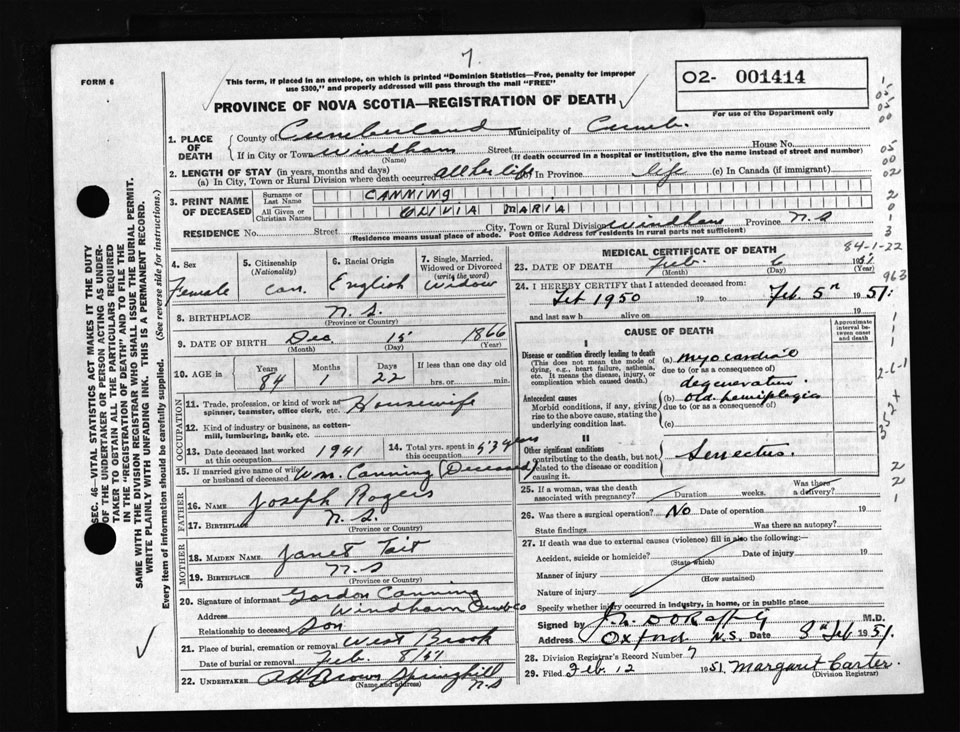 7.
FORM 6
This form, if placed in an envelope, on which is printed "Dominion Statistics—Free, penalty for improper
use $300," and properly addressed will pass through the mail "FREE"
O2- 001414
For use of the Department only
PROVINCE OF NOVA SCOTIA—REGISTRATION OF DEATH
1. PLACE OF DEATH
County of Cumberland Municipality of Cumb.
If in City or Town Windham Street House No.
(Name) (If death occurred in a hospital or institution, give the name instead of street and number)
2. LENGTH OF STAY (in years, months and days)
(a) In City, Town or Rural Division where death occurred all her life In Province life (c) In Canada (if immigrant)
3. PRINT NAME OF DECEASED
Surname or Last Name CANNING
All Given or Christian Names OLIVIA MARIA
RESIDENCE No. Street City, Town or Rural Division Windham Province N.S
(Residence means usual place of abode. Post Office Address for residents in rural parts not sufficient)
4. Sex
Female
5. Citizenship
(Nationality)
Can.
6. Racial Origin
English
7. Single, Married,
Widowed or Divorced
(write the word)
Widow
8. BIRTHPLACE N.S.
(Province or Country)
9. DATE OF BIRTH Dec 15 1866
(Month) (Day) (Year)
10. AGE in Years Months Days If less than one day old
84 1 22 hrs. or min.
OCCUPATION
11. Trade, profession, or kind of work as
spinner, teamster, office clerk, etc. Housewife
12. Kind of industry or business, as cotton-
mill, lumbering, bank, etc.
13. Date deceased last worked
at this occupation 1941
14. Total yrs. spent in
this occupation 53 years
15. If married give name of wife
or husband of deceased Wm. Canning (Deceased)
FATHER
16. NAME Joseph Rogers
17. BIRTHPLACE N.S.
(Province or Country)
MOTHER
18. MAIDEN NAME Janet Tait
19. BIRTHPLACE N.S
(Province or Country)
20. Signature of informant Gordon Canning
Address Windham Cumb Co
Relationship to deceased Son
21. Place of burial, cremation or removal West Brook
Date of burial or removal Feb. 8/51
22. UNDERTAKER Brown Springhill
(Name and address) N.S
MEDICAL CERTIFICATE OF DEATH
84-1-22
23. DATE OF DEATH Feb. 6 1951
(Month) (Day) (Year)
24. I HEREBY CERTIFY that I attended deceased from:
Feb 1950 19 to Feb. 5th 1951:
and last saw h alive on 19
CAUSE OF DEATH
Approximate
interval be-
tween onset
and death
I
Disease or condition directly leading to death
(This does not mean the mode of
dying, e.g., heart failure, asthenia,
etc. It means the disease, injury, or
complication which caused death.)
(a) Myocardial
due to (or as a consequence of)
degeneration.
Antecedent causes
Morbid conditions, if any, giving
rise to the above cause, stating the
underlying condition last.
(b) Old hemiplegia
due to (or as a consequence of)
(c)
II
Other significant conditions
contributing to the death, but not
related to the disease or condition
causing it.
Senectus.
25. If a woman, was the death
associated with pregnancy? Duration weeks. Was there
a delivery?
26. Was there a surgical operation? No Date of operation 19
State findings Was there an autopsy?
27. If death was due to external causes (violence) fill in also the following:
Accident, suicide or homicide? Date of injury 19
(State which)
Manner of injury
(How sustained)
Nature of injury
Specify whether injury occurred in industry, in home, or in public place
Signed by M.D.
Address Oxford N.S. Date 8th Feb 1951.
28. Division Registrar's Record Number 7
29. Filed Feb. 12 1951 Margaret Carter.
(Division Registrar)
SEC. 46—VITAL STATISTICS ACT MAKES IT THE DUTY
OF THE UNDERTAKER OR PERSON ACTING AS UNDER-
TAKER TO OBTAIN ALL THE PARTICULARS REQUIRED
IN THE "REGISTRATION OF DEATH" AND TO FILE THE
SAME WITH THE DIVISION REGISTRAR WHO SHALL ISSUE THE BURIAL PERMIT.
WRITE PLAINLY WITH UNFADING INK. THIS IS A PERMANENT RECORD.
Every item of information should be carefully supplied. (See reverse side for instructions.)